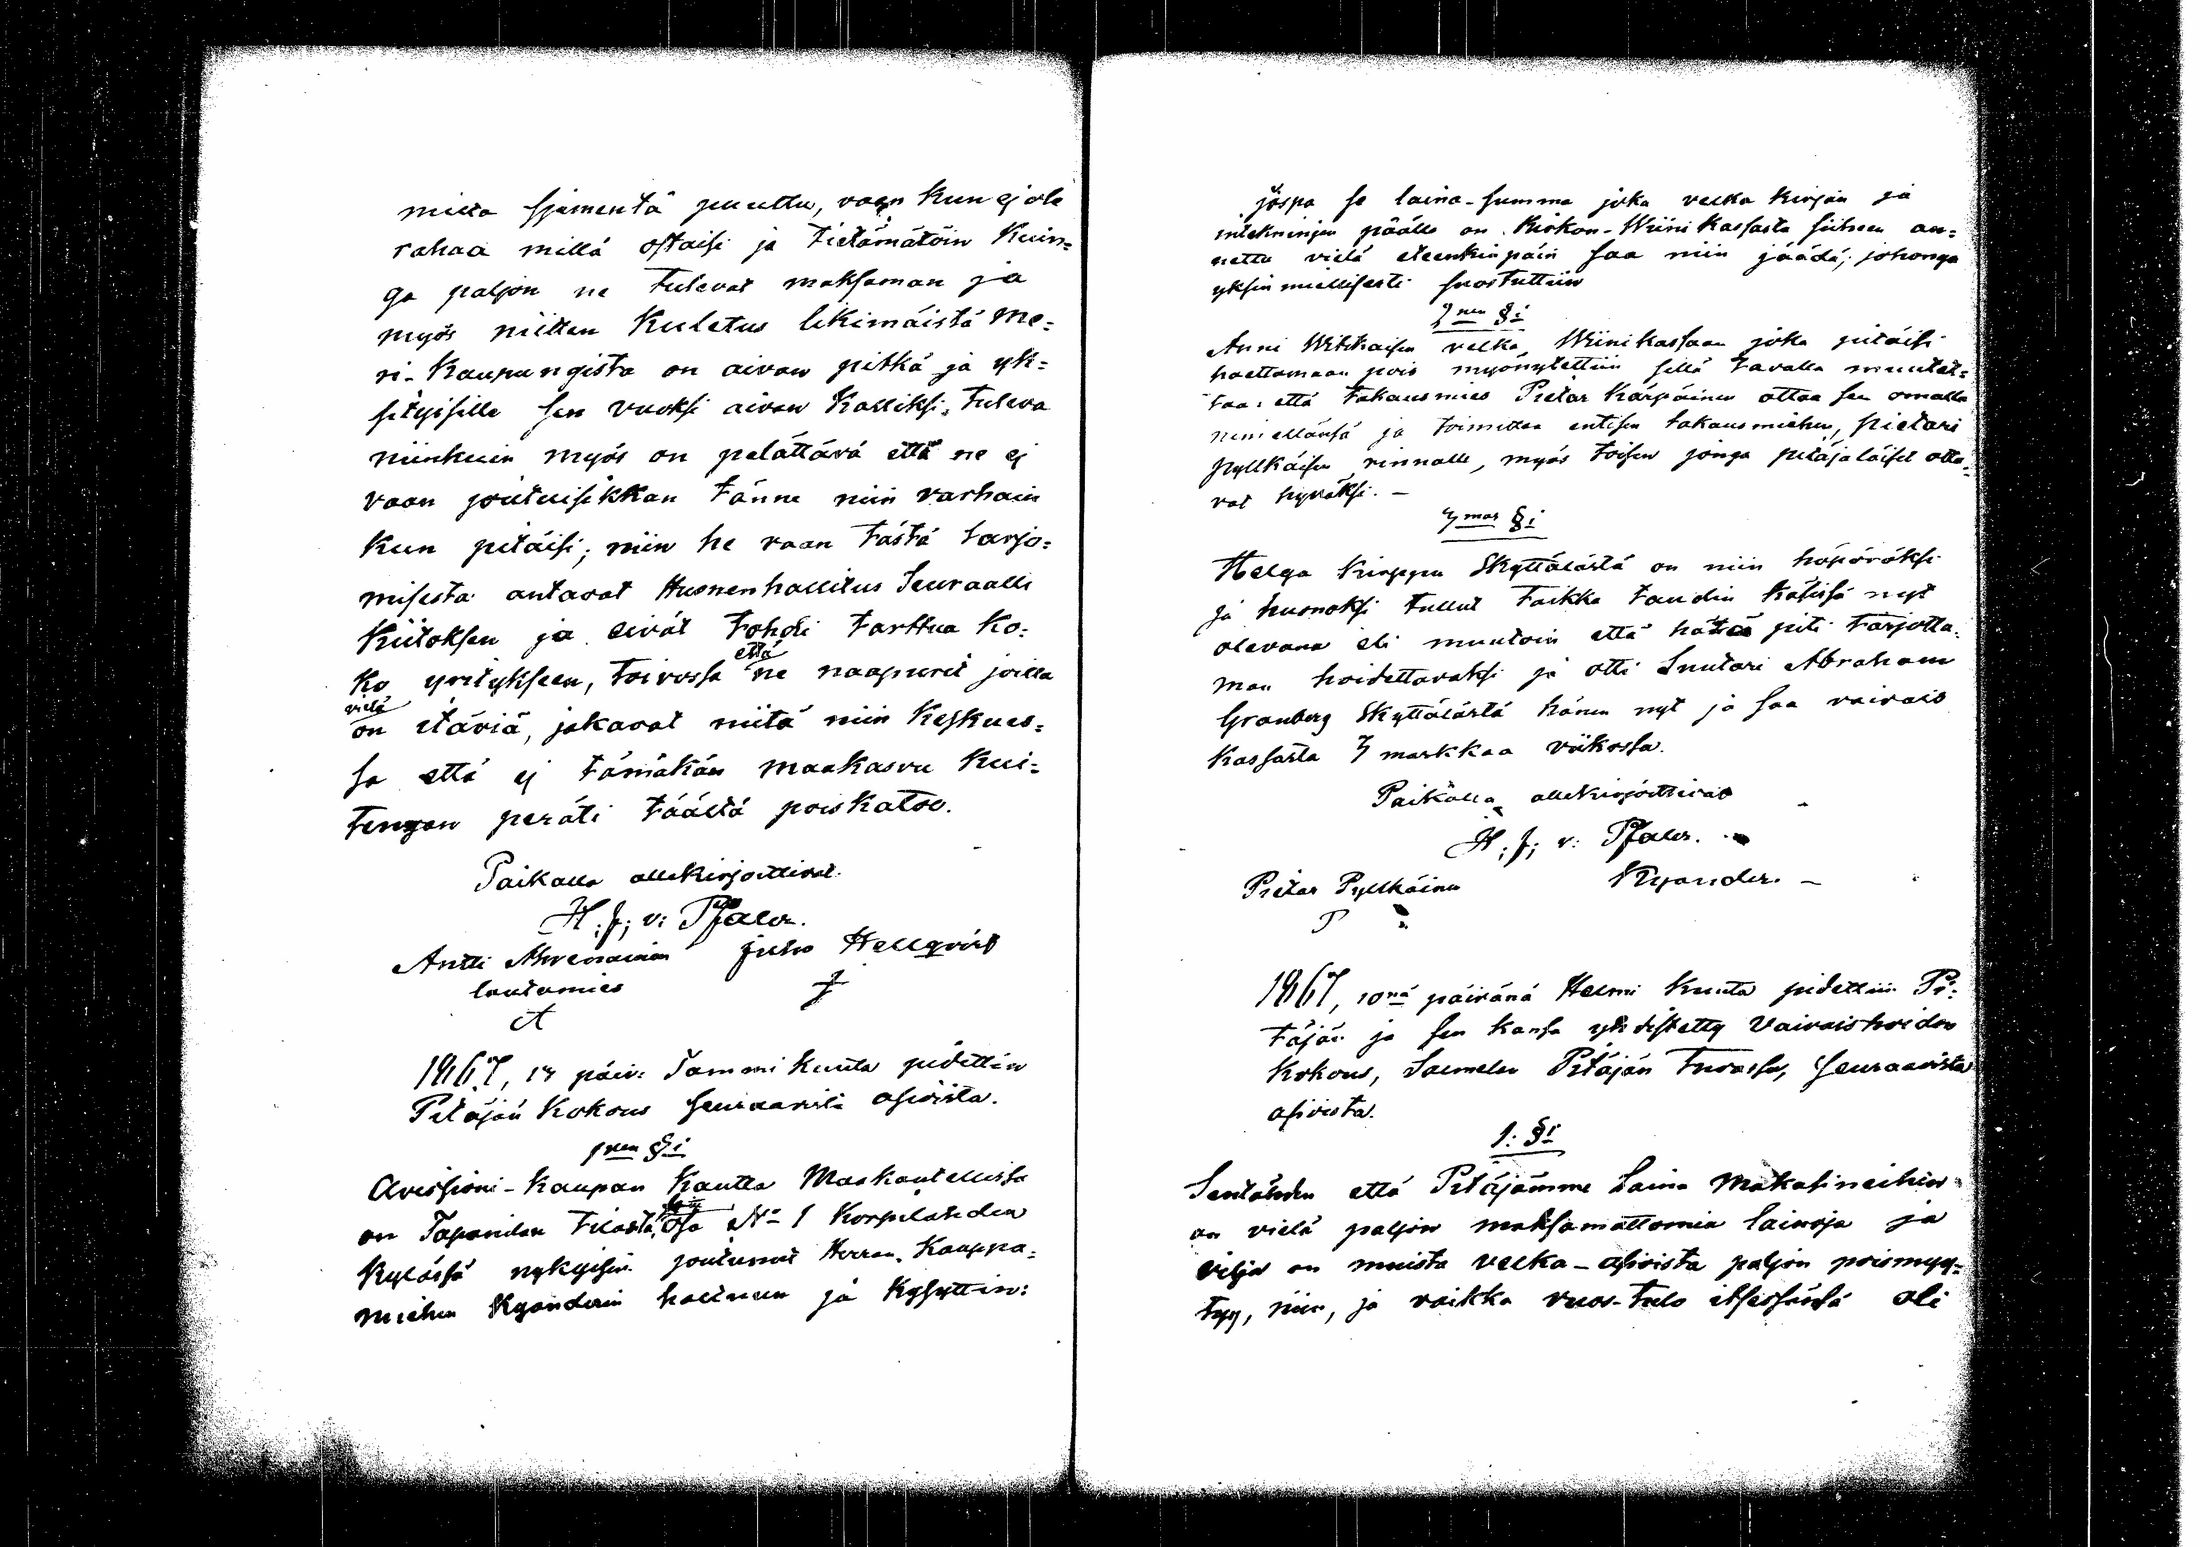 milla sjementä puuttu, vaan kun ej ole
rahaa millä ostaisi ja tietämätöin kuin=
ga paljon ne tulevat maksaman ja
myös niitten kuletus likimäistä me=
ri-kaupungista on aivan pitkä ja yk=
sityisille sen vuoksi aivan kalliksi tuleva
niinkuin myös on pelättävä että ne ej
vaan joutuisikkan tänne niin varhain
kun pitäisi; niin he vaan tästä tarjo=
misesta antavat Huonenhallitus Seuraalle
kiitoksen ja eivät tohdi tarttua ko=
ko yritykseen, toivossa että ne naapurit joilla
vielä on itäviä, jakavat niitä niin keskues=
sa että ej tämäkän maakasvu kui=
tengan peräti täältä poiskatoo.
Paikalla allekirjoittivat.
H. J; v: Pfaler.
Antti Ahvenainen Juho Hellqvist
lautamies
A
1867, 14 päiv: Tammi kuuta pidettin
Pitäjän kokous seuraavista asioista.
1nen §i
Avissioni-kaupan kautta Maakautellissa
on Tapanilan tilasta, osa No 1 Korpilahden
kylässä nykyisin joutunut Herran, Kauppa=
miehen Kyanderin haltuun ja kysyttin:
jospa se laina-summa joka velka kirjan ja
intekningin päälle on Kirkon-Wiini kassasta siihen an=
nettu vielä eteenkinpäin saa niin jäädä; johonga
yksinmiellisesti suostuttiin
2nen §i
Anni Witikaisen velka Wiinikassaan joka pitäisi
haettamaan pois myönytettiin sillä tavalla muutet=
taa: että takausmies Pietar Kärpäinen ottaa sen omalla
nimellänsä ja toimittaa entisen takausmiehen, Pietari
Pyllkäisen rinnalle, myös toisen jonga pitäjäläiset otta=
vat hyväksi. –
3mas §i
Helga Kirppu Skyttälästä on niin höpöröksi
ja huonoksi tullut taikka taudin käsissä nyt
olevana eli muutoin että häntä piti tarjotta=
man hoidettavaksi ja otti Suutari Abraham
Granberg Skyttälästä hänen nyt ja saa vaivais
kassasta 3 markkaa viikossa.
Paikalla allekirjoittivat
H; J; v: Pfaler.
Pietar Pyllkäinen Kyander. –
P
1867, 10nä päivänä Helmi kuuta pidettiin Pi=
täjän ja sen kansa yhdistetty Vaivaishoidon
kokous, Saemelen Pitäjän tuvassa, seuraavista
asioista.
1: §i
Sentähden että Pitäjämme Laina Makasineihin
on vielä paljon maksamattomia lainoja ja
vilja on muista velka-asioista paljon poismyy=
tyy, niin, ja vaikka vuos-tulo itsessänsä oli